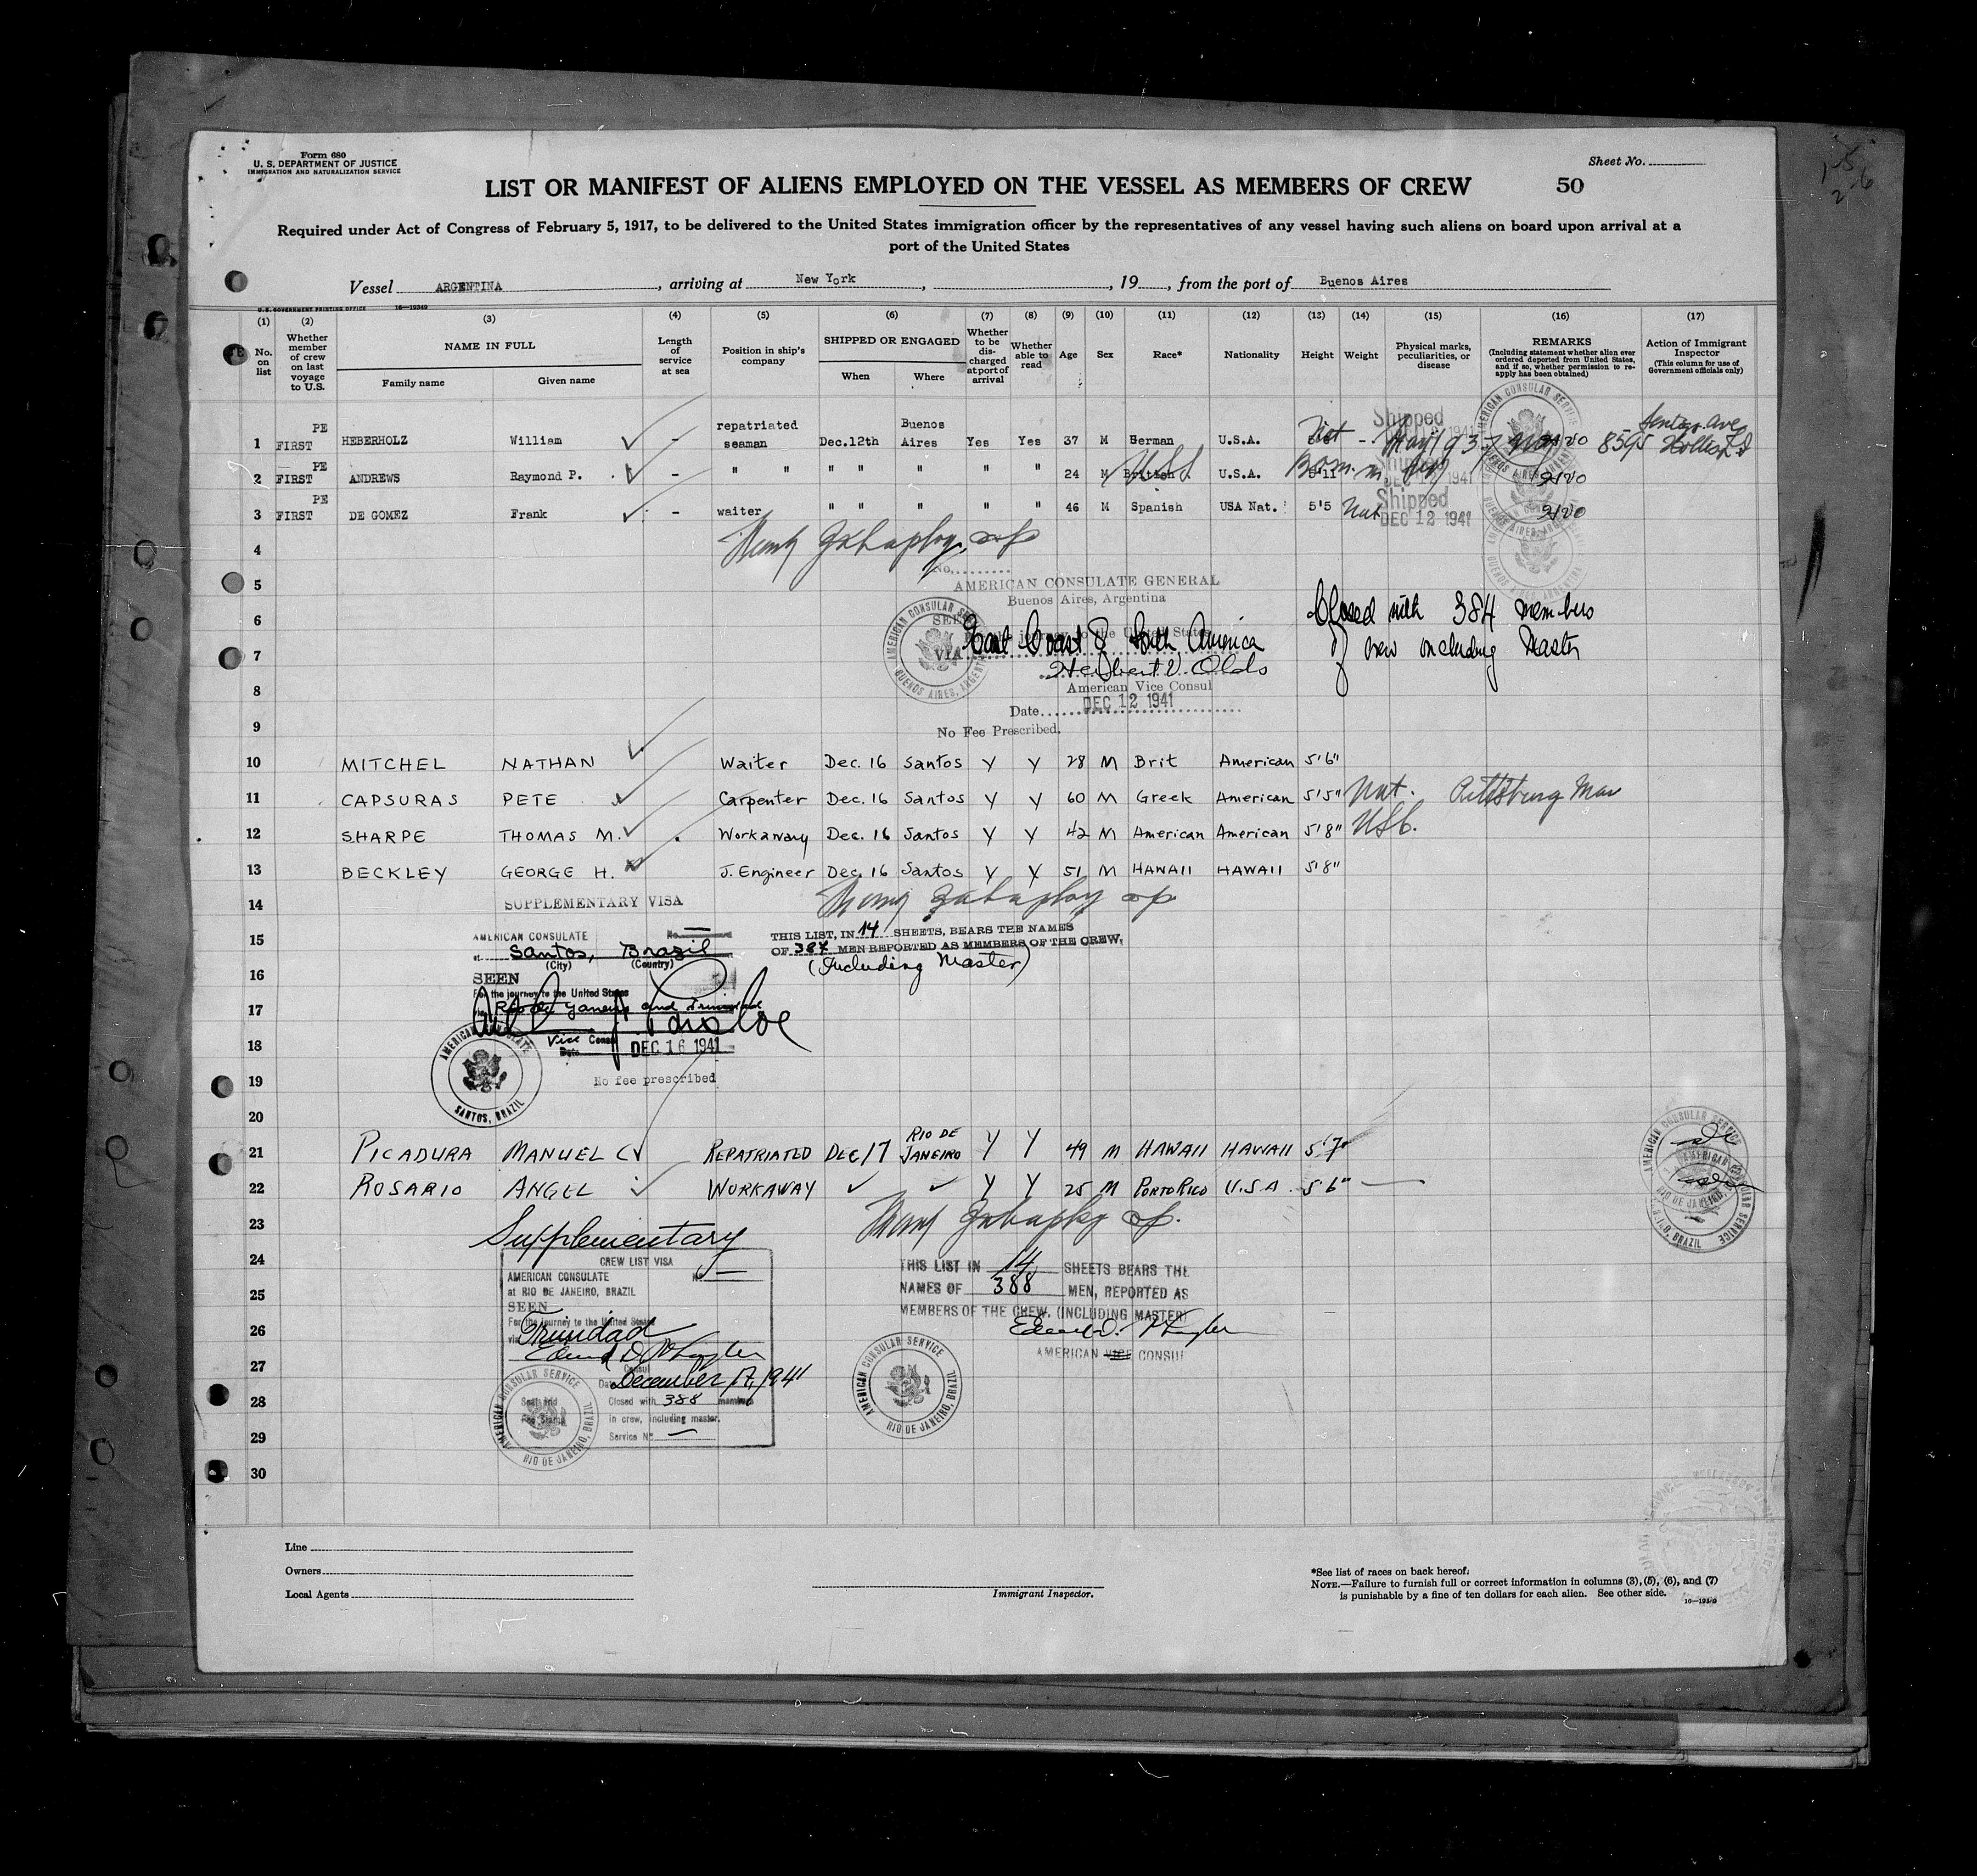 Form 680
U. S. DEPARTMENT OF JUSTICE
IMMIGRATION AND NATURALIZATION SERVICE
Sheet No.
LIST OR MANIFEST OF ALIENS EMPLOYED ON THE VESSEL AS MEMBERS OF CREW 50
Required under Act of Congress of February 5, 1917, to be delivered to the United States immigration officer by the representatives of any vessel having such aliens on board upon arrival at a
port of the United States
Vessel ARGENTINA, arriving at New York, , 19 , from the port of Buenos Aires
U.S. GOVERNMENT PRINTING OFFICE 16—19349
(1) (2) (3) (4) (5) (6) (7) (8) (9) (10) (11) (12) (13) (14) (15) (16) (17)
No. on list
Whether member of crew on last voyage to U.S.
NAME IN FULL
Family name
Given name
Length of service at sea
Position in ship's company
SHIPPED OR ENGAGED
When
Where
Whether to be discharged at port of arrival
Whether able to read
Age
Sex
Race*
Nationality
Height
Weight
Physical marks, peculiarities, or disease
REMARKS
(Including statement whether alien ever ordered deported from United States, and if so, whether permission to reapply has been obtained)
Action of Immigrant Inspector
(This column for use of Government officials only)
1 PE FIRST HEBERHOLZ William - repatriated seaman Dec.12th Buenos Aires Yes Yes 37 M German U.S.A. 8595
2 PE FIRST ANDREWS Raymond P. - " " " " " " " 24 M British U.S.A. 5'11
3 PE FIRST DE GOMEZ Frank - waiter " " " " " 46 M Spanish USA Nat. 5'5 Nat
Shipped
DEC 12 1941
4
5
6
7
8
9
No.
AMERICAN CONSULATE GENERAL
Buenos Aires, Argentina
SEEN
VIA East Coast of South America
Herbert V. Olds
American Vice Consul
Date DEC 12 1941
No Fee Prescribed.
AMERICAN CONSULAR SERVICE
BUENOS AIRES, ARGENTINA
Closed with 384 members
of crew including Master
10 MITCHEL NATHAN Waiter Dec. 16 Santos Y Y 28 M Brit American 5'6"
11 CAPSURAS PETE Carpenter Dec. 16 Santos Y Y 60 M Greek American 5'5" Nat. Pittsburg
12 SHARPE THOMAS M. Workaway Dec. 16 Santos Y Y 42 M American American 5'8" USC.
13 BECKLEY GEORGE H. J. Engineer Dec. 16 Santos Y Y 51 M HAWAII HAWAII 5'8"
14
SUPPLEMENTARY VISA
15
AMERICAN CONSULATE No. —
at Santos, Brazil
(City) (Country)
THIS LIST, IN 14 SHEETS, BEARS THE NAMES
OF 387 MEN REPORTED AS MEMBERS OF THE CREW.
(Including Master)
16
SEEN
For the journey to the United States
17
Rio de Janeiro and Trinidad
18
Vice Consul
Date DEC 16 1941
AMERICAN CONSULATE
SANTOS, BRAZIL
19
No fee prescribed
20
21 PICADURA MANUEL C REPATRIATED DEC 17 RIO DE JANEIRO Y Y 49 M HAWAII HAWAII 5'7"
22 ROSARIO ANGEL WORKAWAY Y Y 25 M PORTO RICO U.S.A. 5'6"
AMERICAN CONSULAR SERVICE
RIO DE JANEIRO, BRAZIL
23
Supplementary
24
CREW LIST VISA
AMERICAN CONSULATE No —
at RIO DE JANEIRO, BRAZIL
SEEN
For the journey to the United States
via Trinidad
Consul
Date December 17, 1941
Closed with 388 members
in crew, including master.
Service No —
Seal and
Fee Stamp
AMERICAN CONSULAR SERVICE
RIO DE JANEIRO, BRAZIL
THIS LIST IN 14 SHEETS BEARS THE
NAMES OF 388 MEN, REPORTED AS
MEMBERS OF THE CREW, (INCLUDING MASTER)
AMERICAN VICE CONSUL
AMERICAN CONSULAR SERVICE
RIO DE JANEIRO, BRAZIL
25
26
27
28
29
30
Line
Owners
Local Agents
Immigrant Inspector.
*See list of races on back hereof.
NOTE.—Failure to furnish full or correct information in columns (3), (5), (6), and (7)
is punishable by a fine of ten dollars for each alien. See other side.